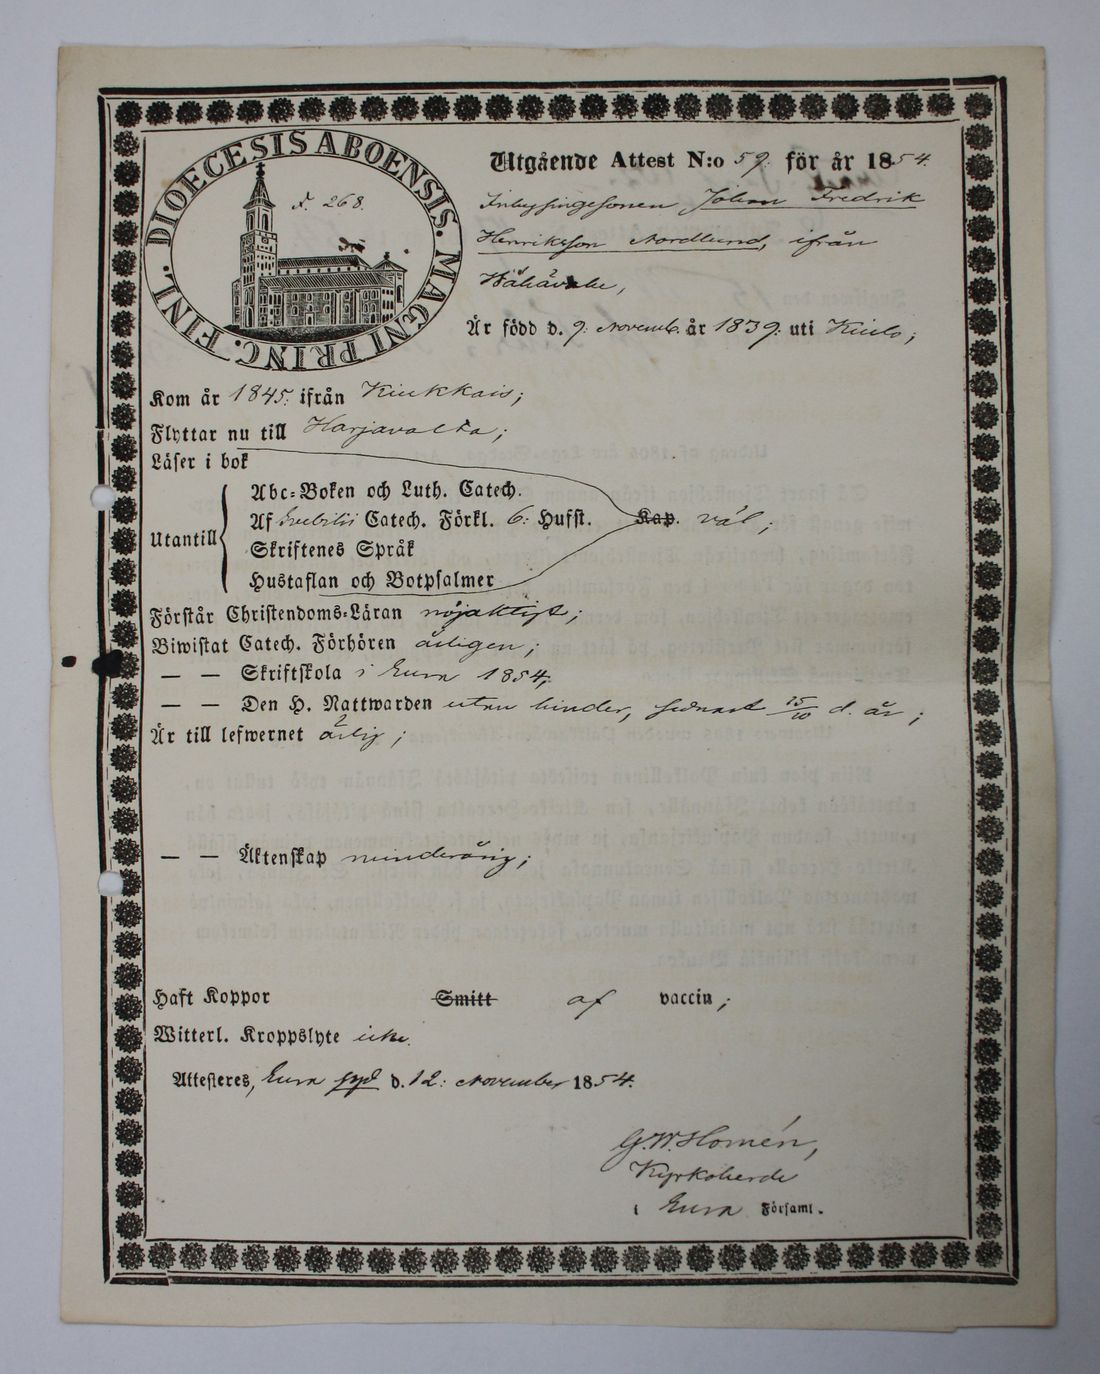 DIOECESIS ABOENSIS. MAGNI PRINC. FINL.
F. 268.
Utgående Attest N:o 59. för år 1854.
Inhysingesonen Johan Fredrik
Henriksson Nordlund, ifrån
Är född d. 9. Novemb. år 1839. uti Kiulo;
Kom år 1845. ifrån Kiukkais;
Flyttar nu till Harjavalta;
Läser i bok
Abc-Boken och Luth. Catech.
Utantill Af Svebilii Catech. Förkl. 6: Hufst. Kap. väl;
Skriftenes Språk
Hustaflan och Botpsalmer
Förstår Christendoms-Läran nöjaktigt;
Biwistat Catech. Förhören årligen;
— — Skriftskola i Eura 1854;
— — Den H. Nattwarden utan hinder, sednast 15/10 d. år;
Är till lefwernet ärlig;
— — Äktenskap minderårig;
Haft Koppor Smitt af vaccin;
Witterl. Kroppslyte icke.
Attesteres, Eura d. 12: November 1854.
G. W. Homén,
Kyrkoherde
i Eura Församl.